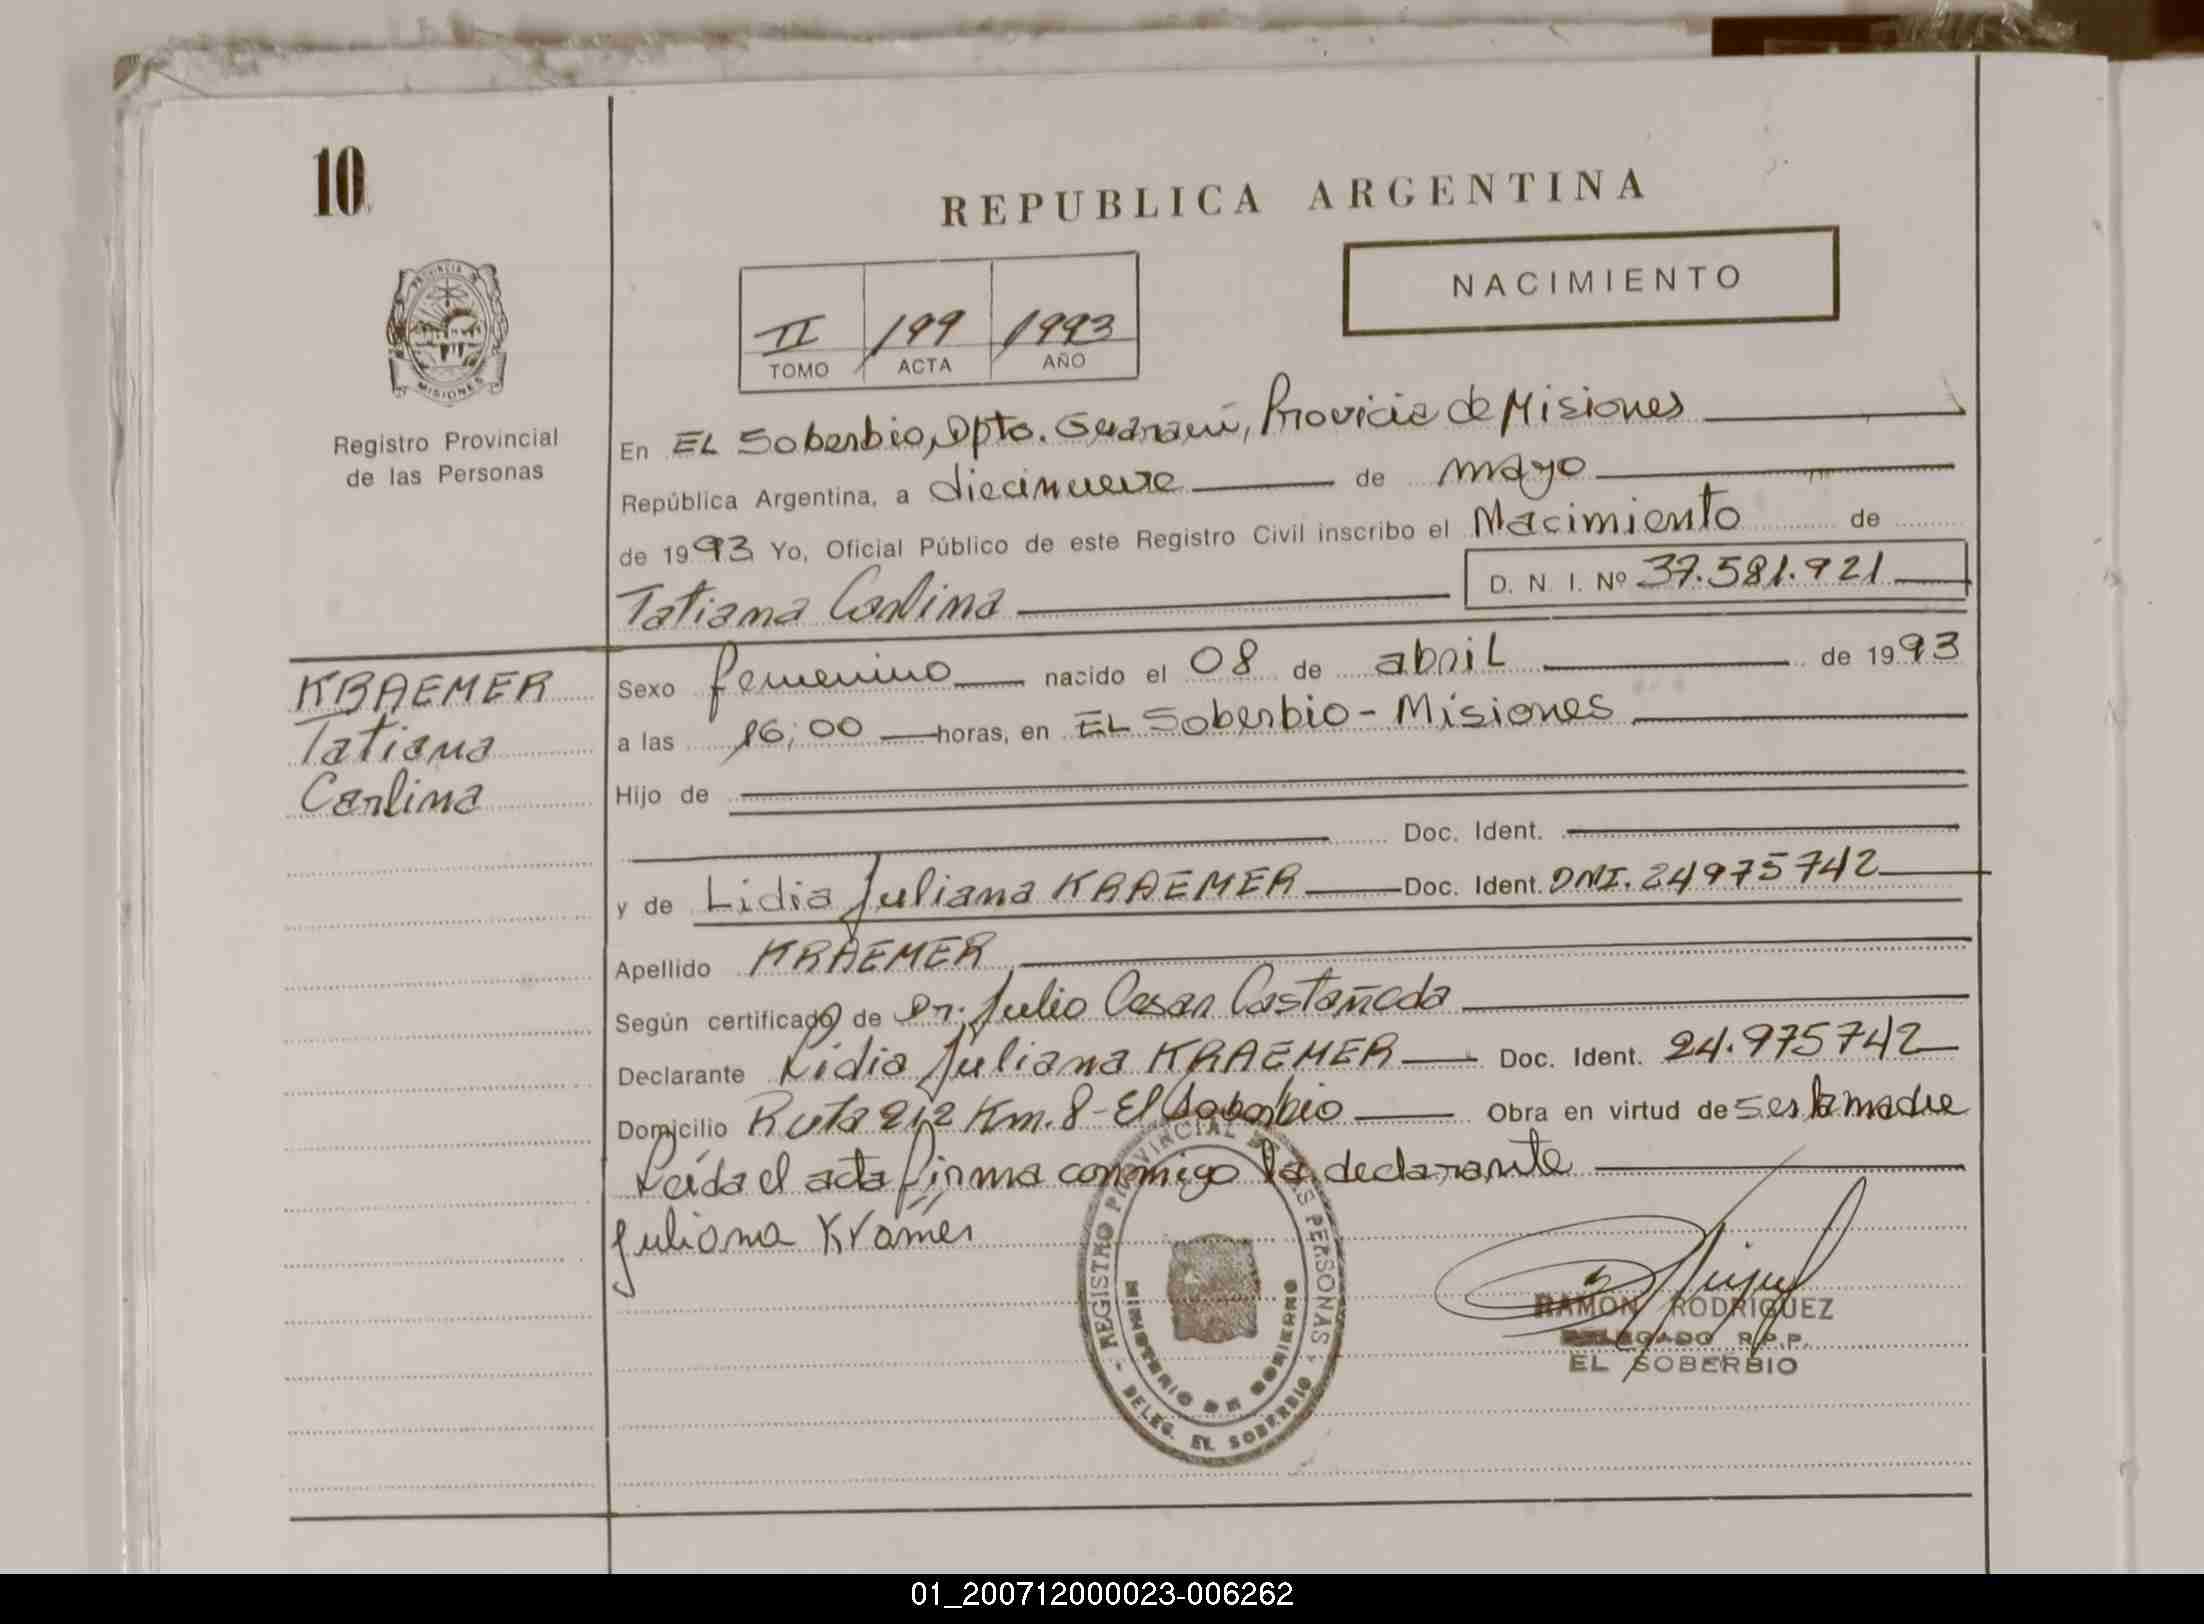 10
REPUBLICA ARGENTINA
NACIMIENTO
II 199 1993
TOMO ACTA AÑO
PROVINCIA DE
MISIONES
Registro Provincial
de las Personas
En EL Soberbio, Dpto. Guaraní, Provicia de Misiones
República Argentina, a diecinueve de mayo
de 1993 Yo, Oficial Público de este Registro Civil inscribo el Nacimiento de
Tatiana Carlina D. N. I. Nº 37.581.921
KRAEMER
Tatiana
Carlina
Sexo femenino nacido el 08 de abril de 1993
a las 16:00 horas, en EL Soberbio - Misiones
Hijo de
Doc. Ident.
y de Lidia Juliana KRAEMER Doc. Ident. DNI. 24975742
Apellido KRAEMER
Según certificado de Dr. Julio Cesar Castañeda
Declarante Lidia Juliana KRAEMER Doc. Ident. 24.975742
Domicilio Ruta 212 Km. 8 - El Soberbio Obra en virtud de ser la madre
Leída el acta firma conmigo la declarante
Juliana Kramer
REGISTRO PROVINCIAL DE LAS PERSONAS
MINISTERIO DE GOBIERNO
- DELEG. EL SOBERBIO
RAMON RODRIGUEZ
DELEGADO R.P.P.
EL SOBERBIO
01_200712000023-006262